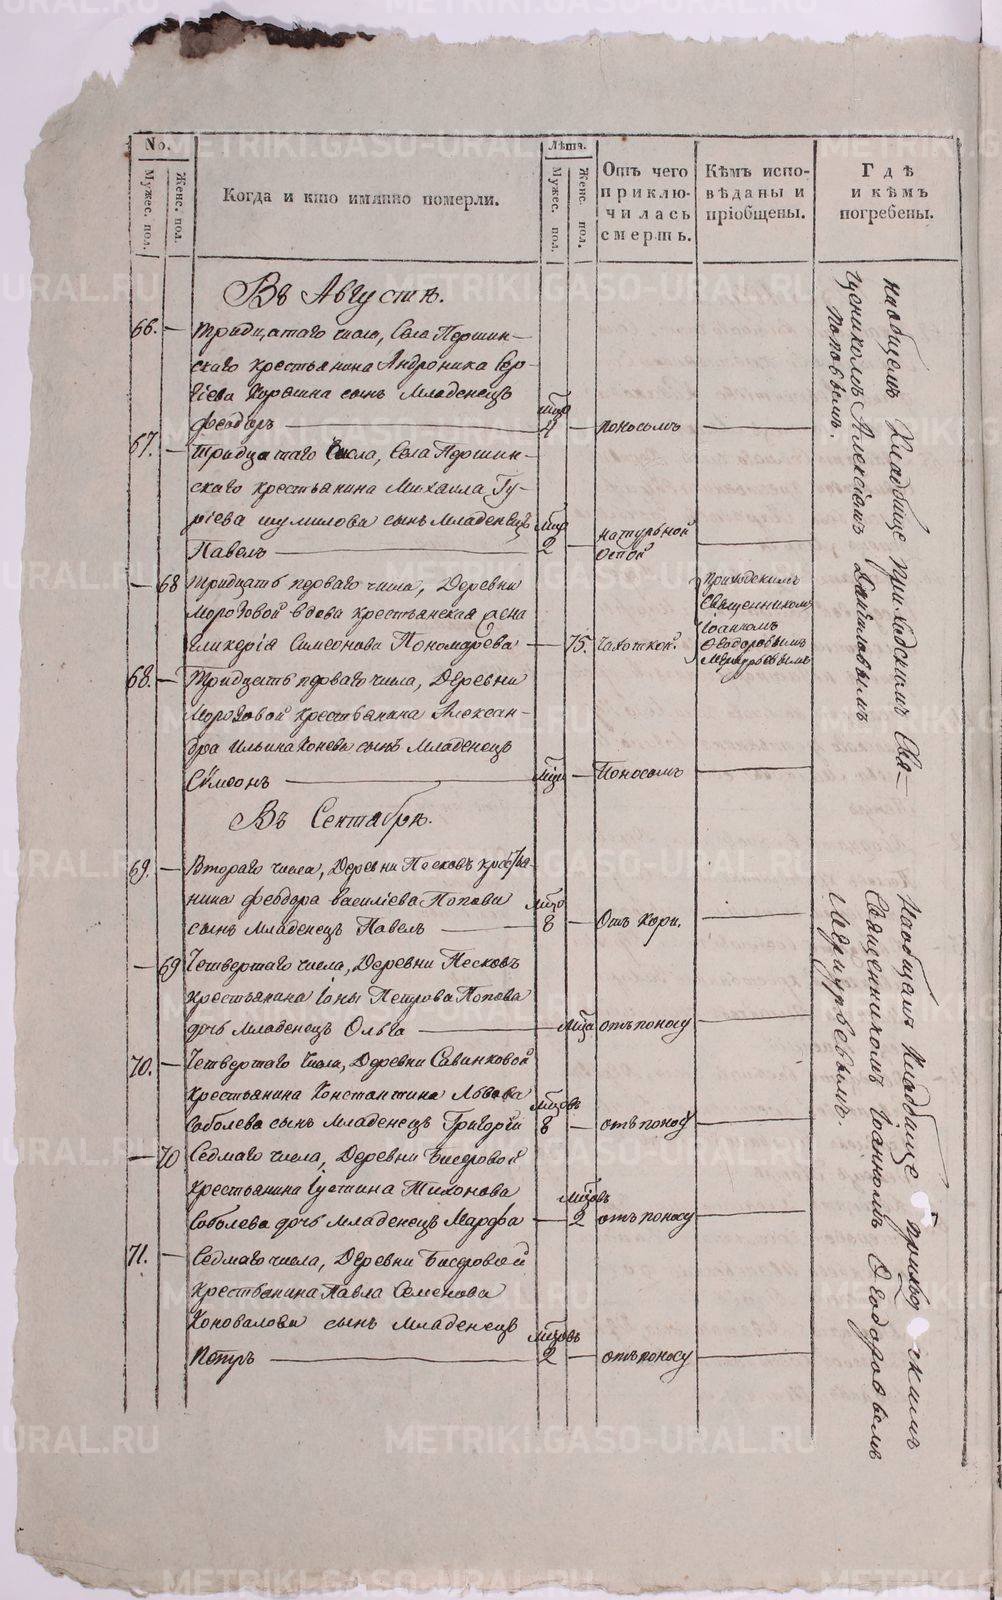 No.
Мужес. пол.
Женс. пол.
Когда и кто имянно померли.
Лѣта.
Мужес. пол.
Женс. пол.
Отъ чего
приклю-
чилась
смерть.
Кѣмъ испо-
вѣданы и
пріобщены.
Гдѣ
и кѣмъ
погребены.
Въ Августѣ.
66. — Тридцатаго числа, Села Першин-
скаго крестьянина Андроника Сер-
гіева сынъ Младенецъ
Феодоръ — — поносомъ —
67. — Тридцатаго числа, Села Першин-
скаго крестьянина Михаила Гу-
ріева Шумилова сынъ Младенецъ
Павелъ — 2 — натурьной оспой —
— 68 Тридцать перваго числа, Деревни
Морозовой вдова крестьянская жена
Гликерія Симеонова Пономарева — 75. Чахоткой.
Приходскимъ
Священникомъ
Іоанномъ
Ѳеодоровымъ
Меркурьевымъ
68. — Тридцать перваго числа, Деревни
Морозовой крестьянина Алексан-
дра Ильина Конева сынъ Младенецъ
Сѵмеонъ — — Поносомъ —
На общемъ Кладбище приходскимъ Свя-
щенникомъ Алексіемъ Даніиловымъ
Поповымъ.
Въ Сентябрѣ.
69. — Втораго числа, Деревни Песковъ крестья-
нина Феодора Васильева Попова
сынъ Младенецъ Павелъ — 8 — Отъ Кори. —
— 69 Четвертаго числа, Деревни Песковъ
крестьянина Іоны Петрова Попова
дочь Младенецъ Ольга — отъ поносу —
70. — Четвертаго числа, Деревни Савинковой
крестьянина Константина Львова
Соболева сынъ Младенецъ Григорій 8 — отъ поносу —
— 70 Седмаго числа, Деревни Бисеровой
Крестьянина Іустина Тихонова
Соболева дочь Младенецъ Марфа — 2 отъ поносу —
71. — Седмаго числа, Деревни Бисеровой
Крестьянина Павла Семенова
Коновалова сынъ Младенецъ
Петръ — 2 — отъ поносу —
На общемъ Кладбище приходскимъ
Священникомъ Іоанномъ Ѳеодоровымъ
Меркурьевымъ.
METRIKI.GASO-URAL.RU